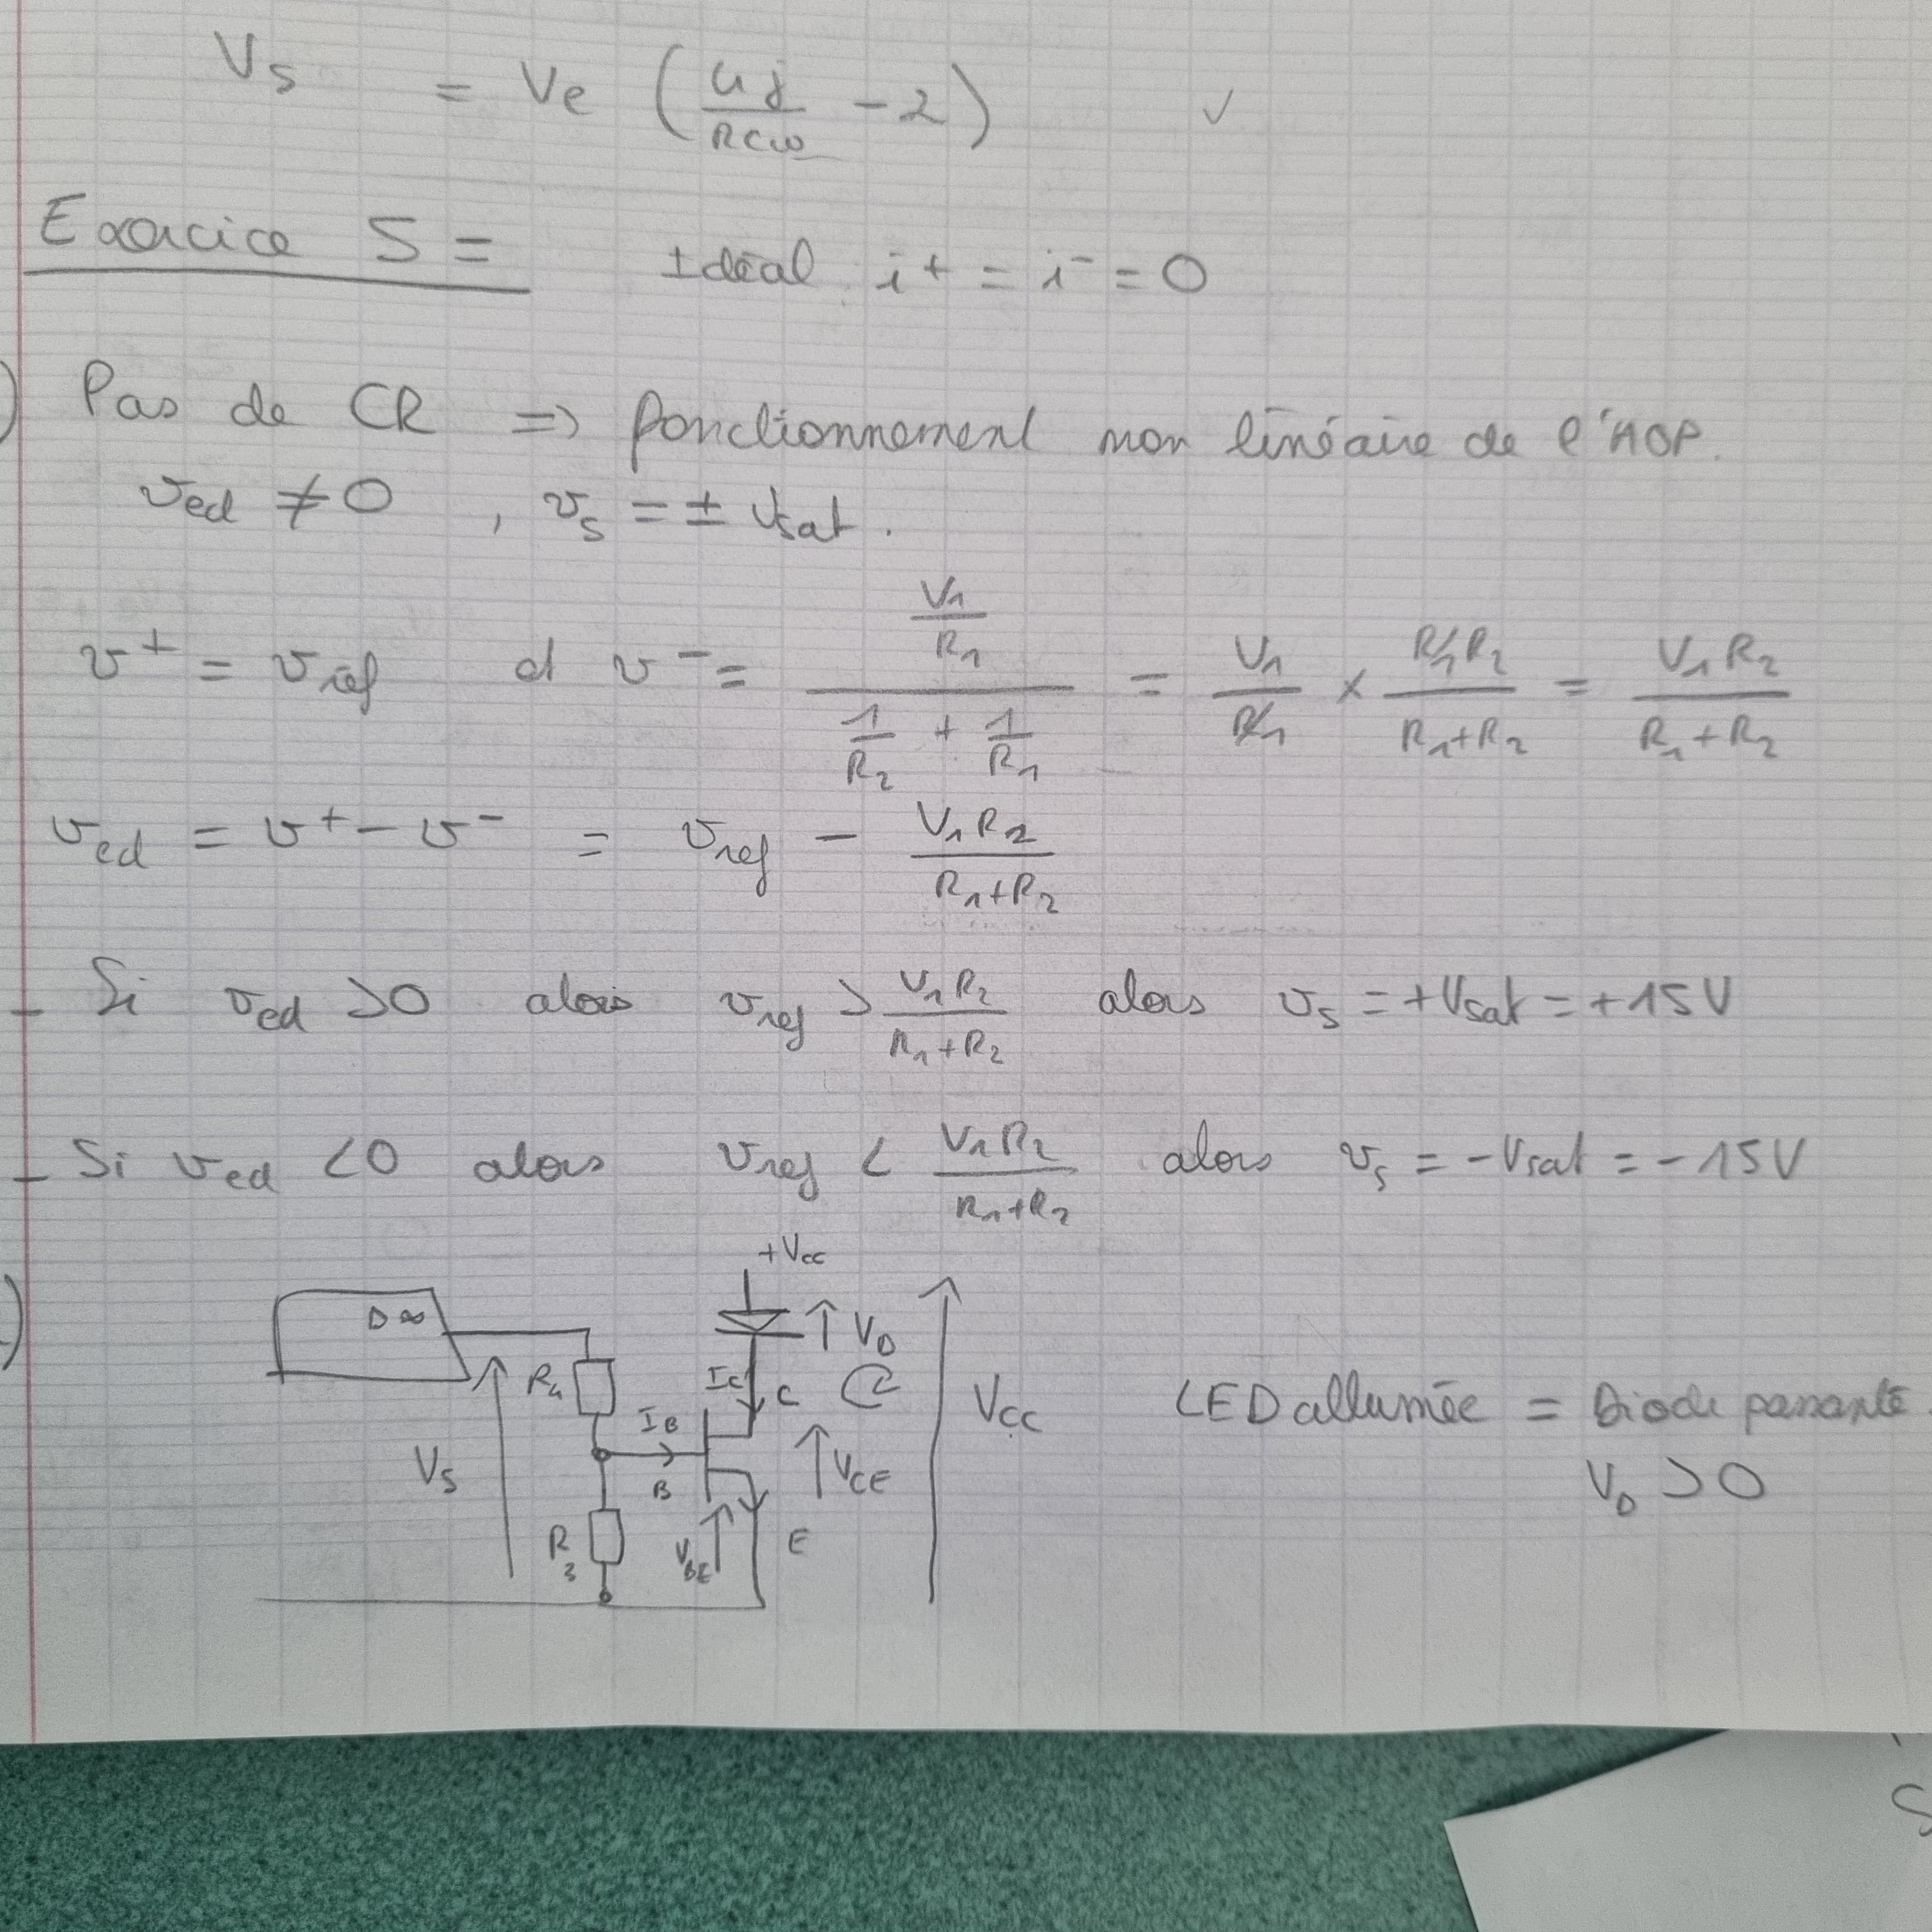 Vs = Ve (4j/RCω - 2) ✓
Exercice 5 = Idéal. i+ = i- = 0
) Pas de CR => fonctionnement non linéaire de l'AOP.
ved ≠ 0 , vs = ± Vsat.
v+ = vref et v- = (V1/R1)/(1/R2 + 1/R1) = V1/R1 × R1R2/(R1+R2) = V1R2/(R1+R2)
ved = v+ - v- = vref - V1R2/(R1+R2)
- Si ved >0 alors vref > V1R2/(R1+R2) alors vs = +Vsat = +15V
- Si ved <0 alors vref < V1R2/(R1+R2) alors vs = -Vsat = -15V
+Vcc
)
D∞
VD
R4 Ic C
IB
Vcc LED allumée = Diode passante.
Vs B VCE VD >0
R3 VBE E